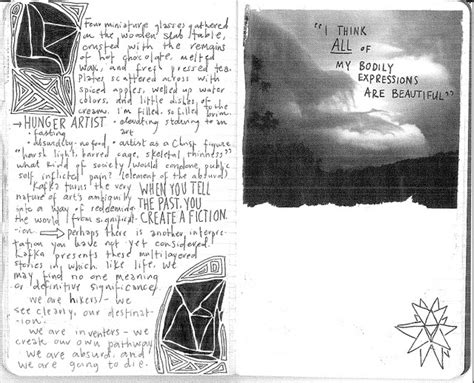 Four miniature glasses gathered
on the wooden slab table,
crusted with the remains
of hot chocolate, melted
wax, and fresh pressed tea.
Plates scattered across with
spiced apples, welled up water
colors, and little dishes of
cream. I'm filled, so filled to the brim.
→ HUNGER ARTIST • elevating starving to an
art
• fasting
• absurdity-no food, • artist as a Christ figure
"harsh light, barred cage, skeletal thinness"
what kind of society would condone public
self inflicted pain? (element of the absurd)
Kafka turns the very
nature of art's ambiguity
into a way of redeeming
the world (from signific-
-ion → perhaps there is another interpre-
tation you have not yet considered.
Kafka presents these multilayered
stories in which like life, we
may find no one meaning
or definitive significance.
WHEN YOU TELL
THE PAST, YOU
CREATE A FICTION.
we are hikers — we
see clearly, our destinat-
-ion.
we are inventers — we
create our own pathway
we are absurd, and
we are going to die.
"I THINK
ALL OF
MY BODILY
EXPRESSIONS
ARE BEAUTIFUL"